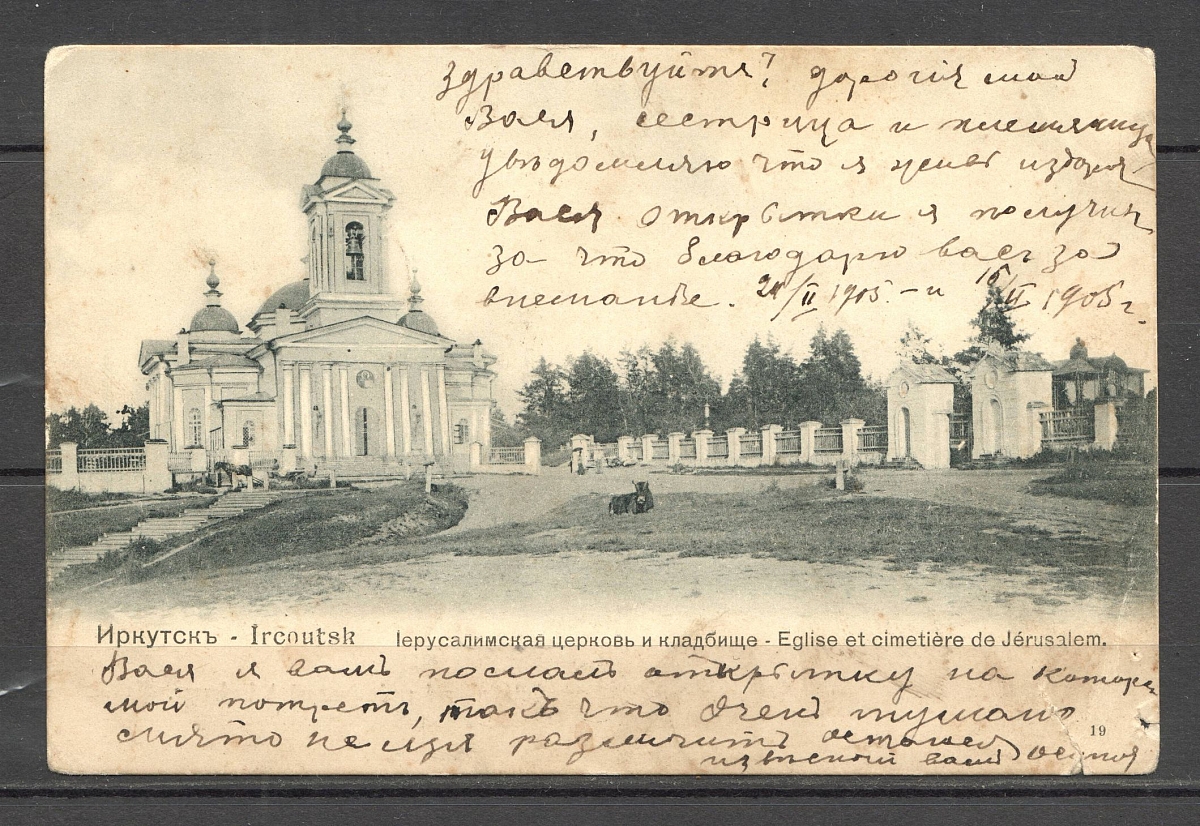 здравствуйте! дорогія мои
Вася, сестрица и племянница
увѣдомляю что я живъ издоровъ
Вася открытки я получил
за что благодарю васъ за
внеманіе. 24/II 1905. - и 15/II 1905 г.
Иркутскъ - Ircoutsk Іерусалимская церковь и кладбище - Eglise et cimetière de Jérusalem.
Вася я вамъ послалъ открытку на которой
мой потретъ, такъ что очень тумано
снято нельзя различить остаюсь
извѣсный вамъ
19